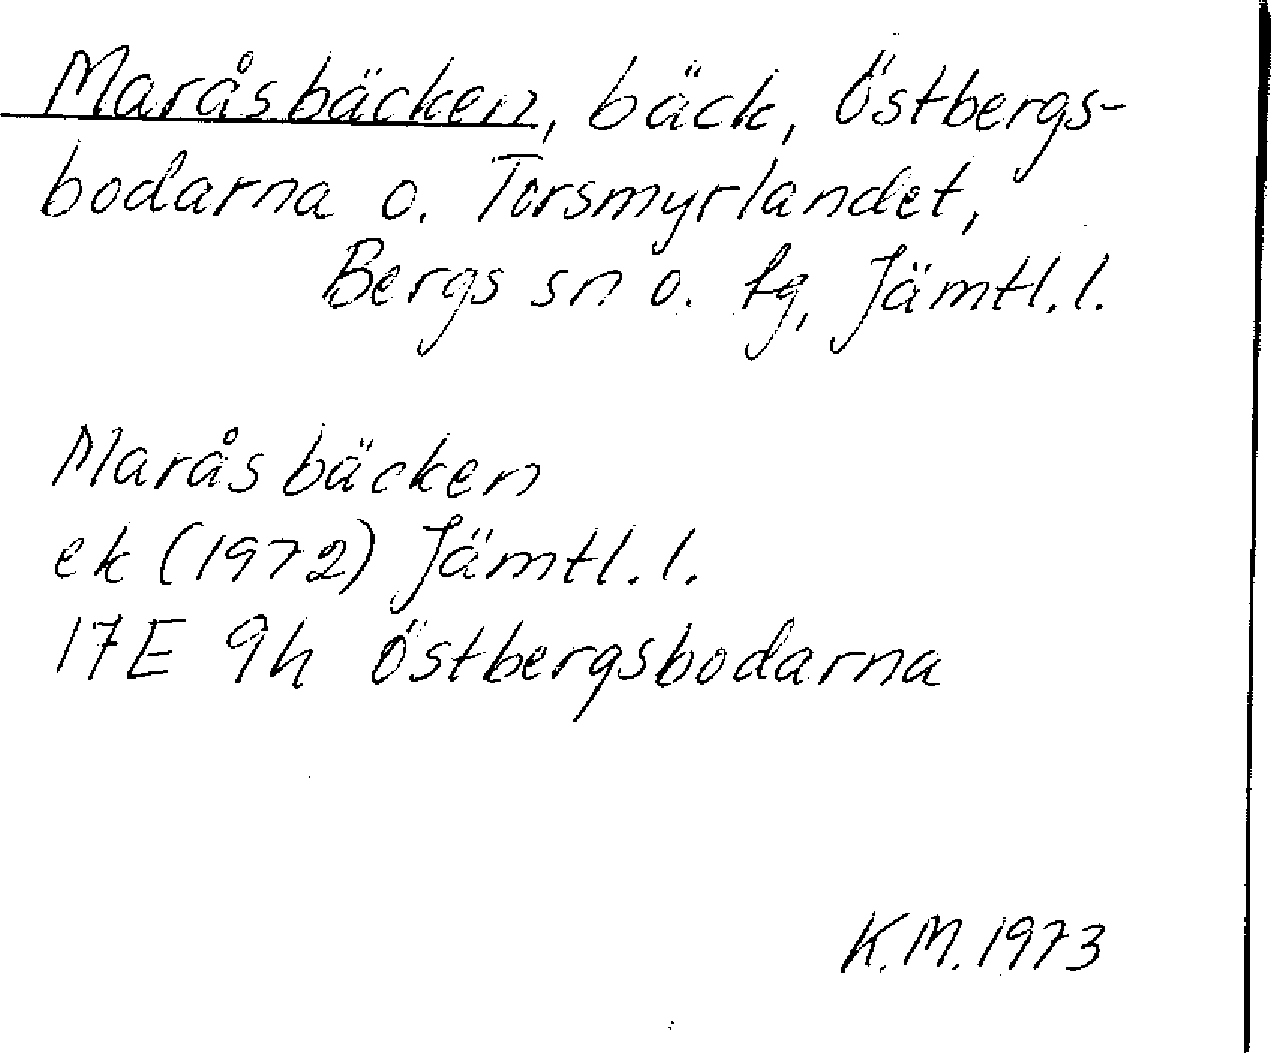 Maråsbäcken, bäck, Östbergs-
bodarna o. Torsmyrlandet,
Bergs sn o. tg, Jämtl. l.
Maråsbäcken
ek (1972) Jämtl. l.
17E 9h Östbergsbodarna
K.M. 1973